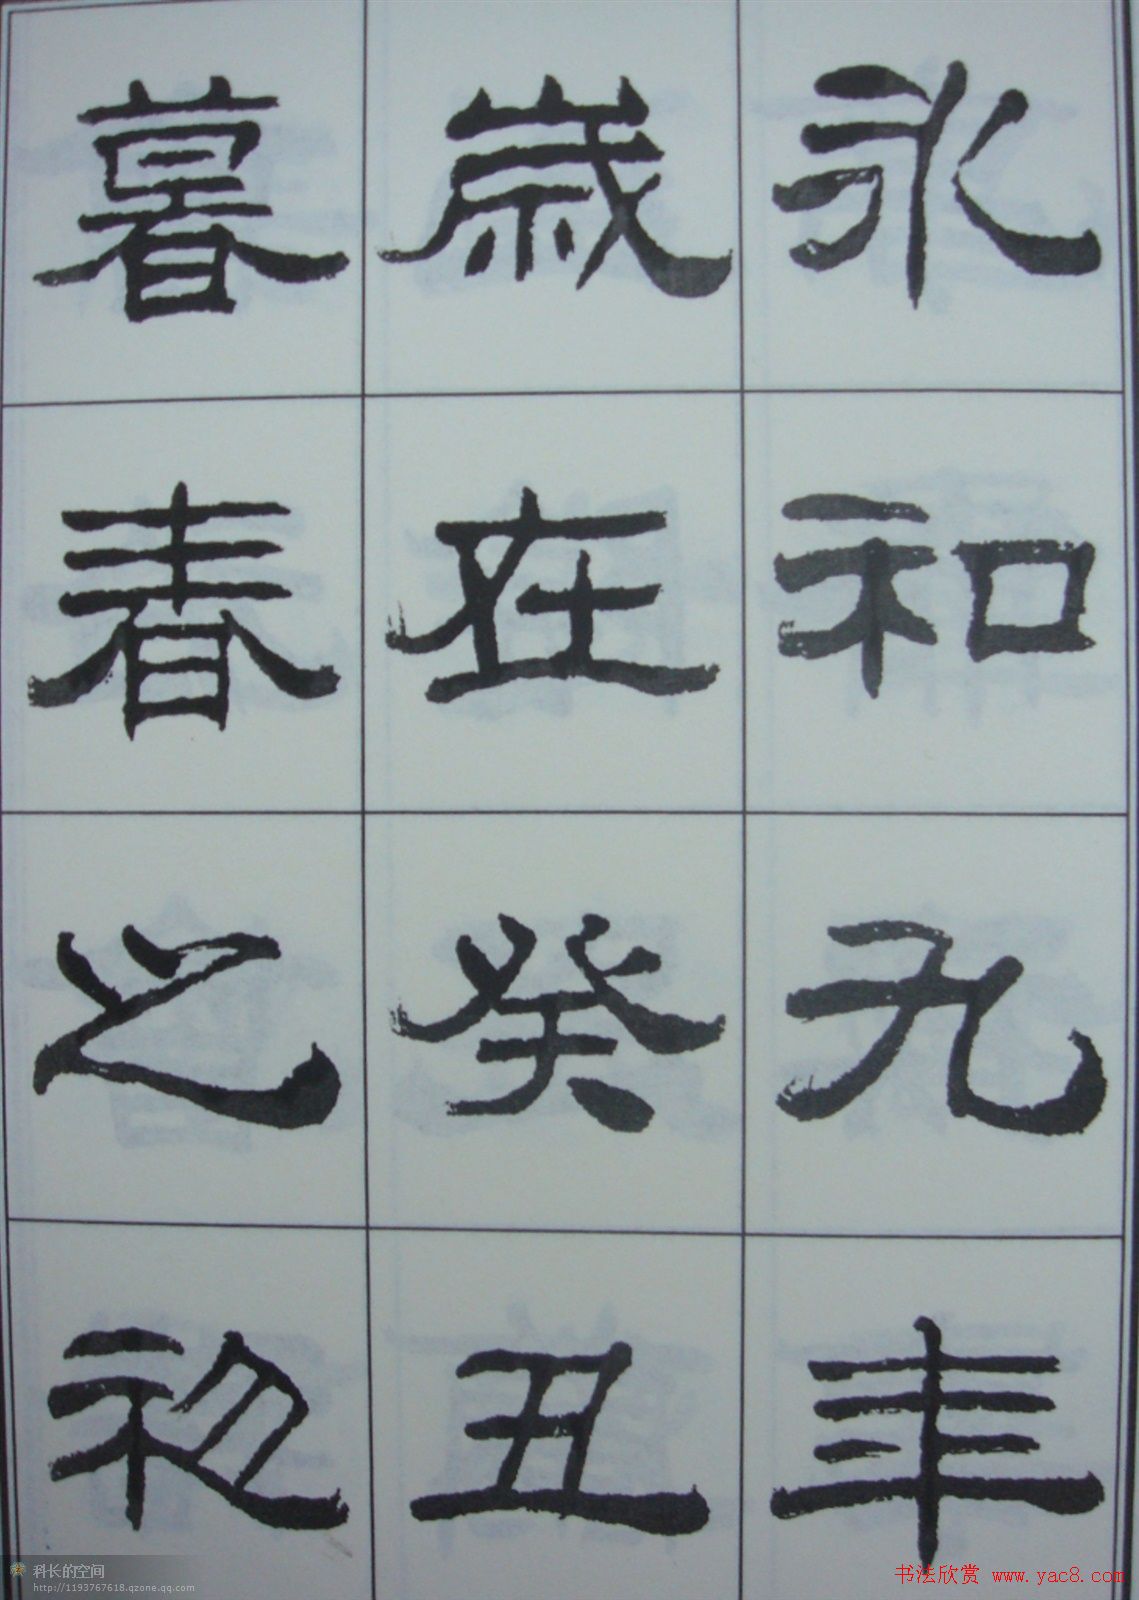 永和九年
歲在癸丑
暮春之初
科长的空间
http://1193767618.qzone.qq.com
书法欣赏 www.yac8.com